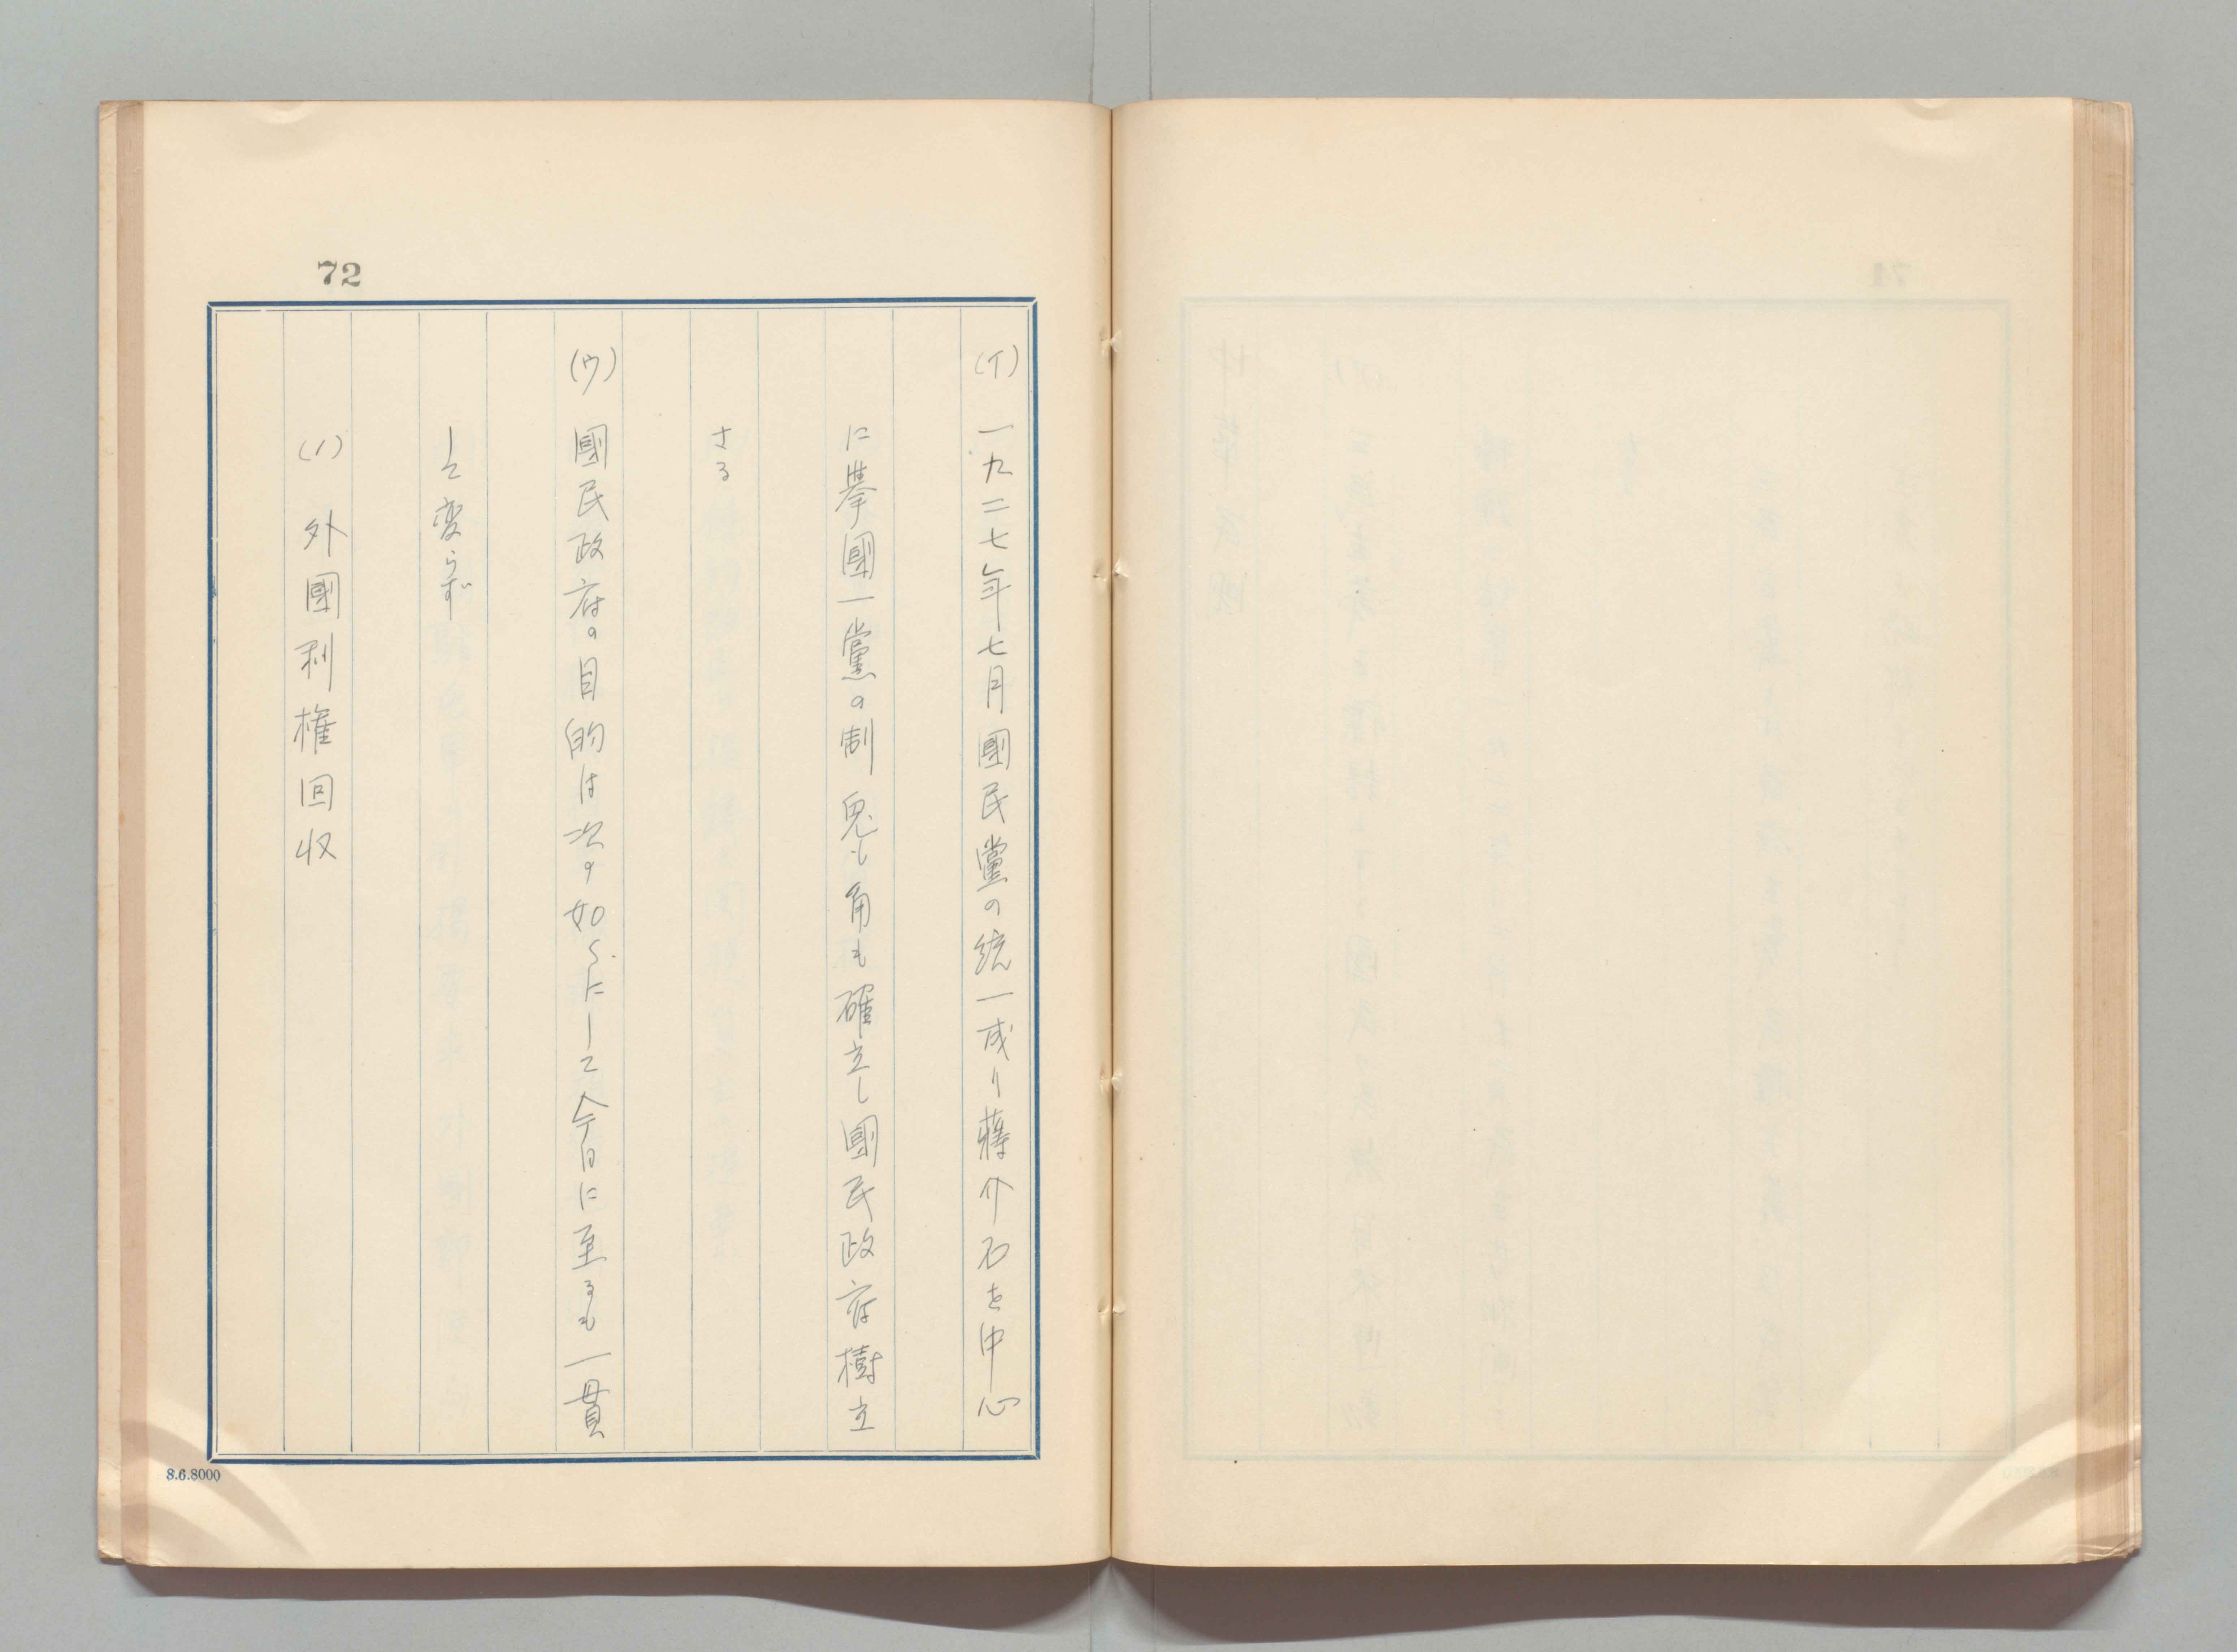 72
(イ) 一九二七年七月國民黨の統一成り蔣介石を中心
に擧國一黨の制 兎も角も確立し國民政府樹立
さる
(ウ) 國民政府の目的は次の如くにして今日に至るも一貫
して変らず
(1) 外國利権回収
8.6.8000